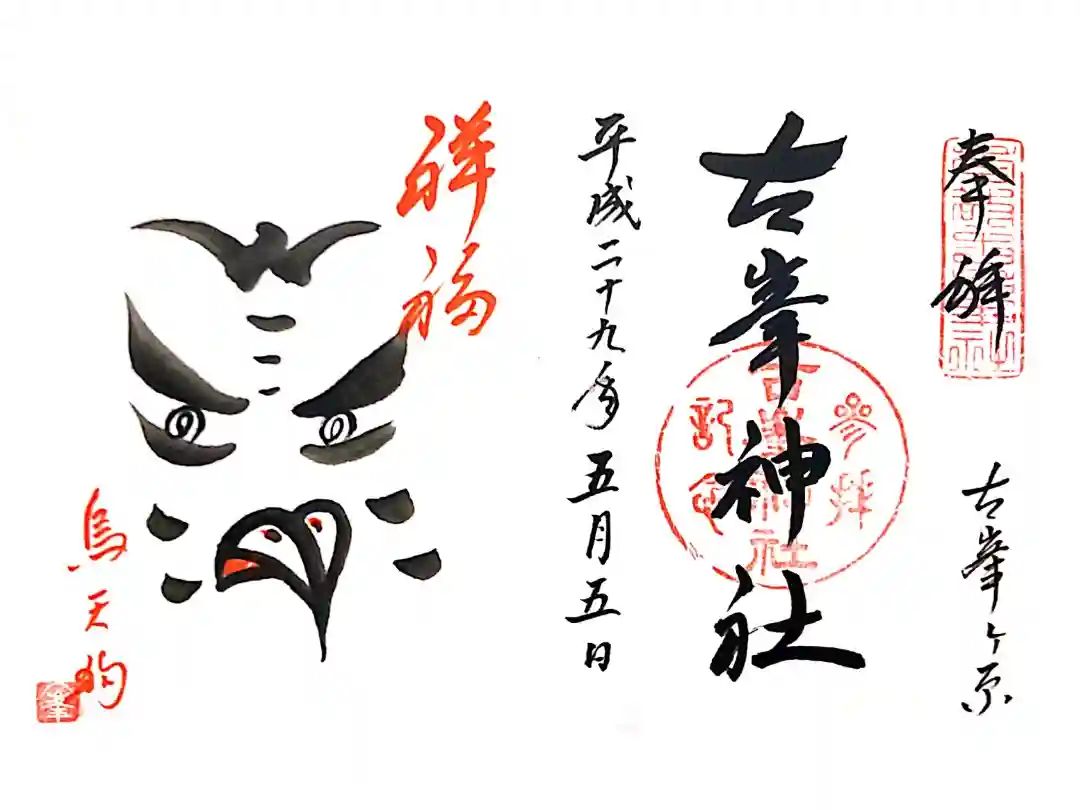 奉拝
古峯ヶ原
古峯神社
参拝
古峯神社
記念
平成二十九年五月五日
祥福
烏天狗